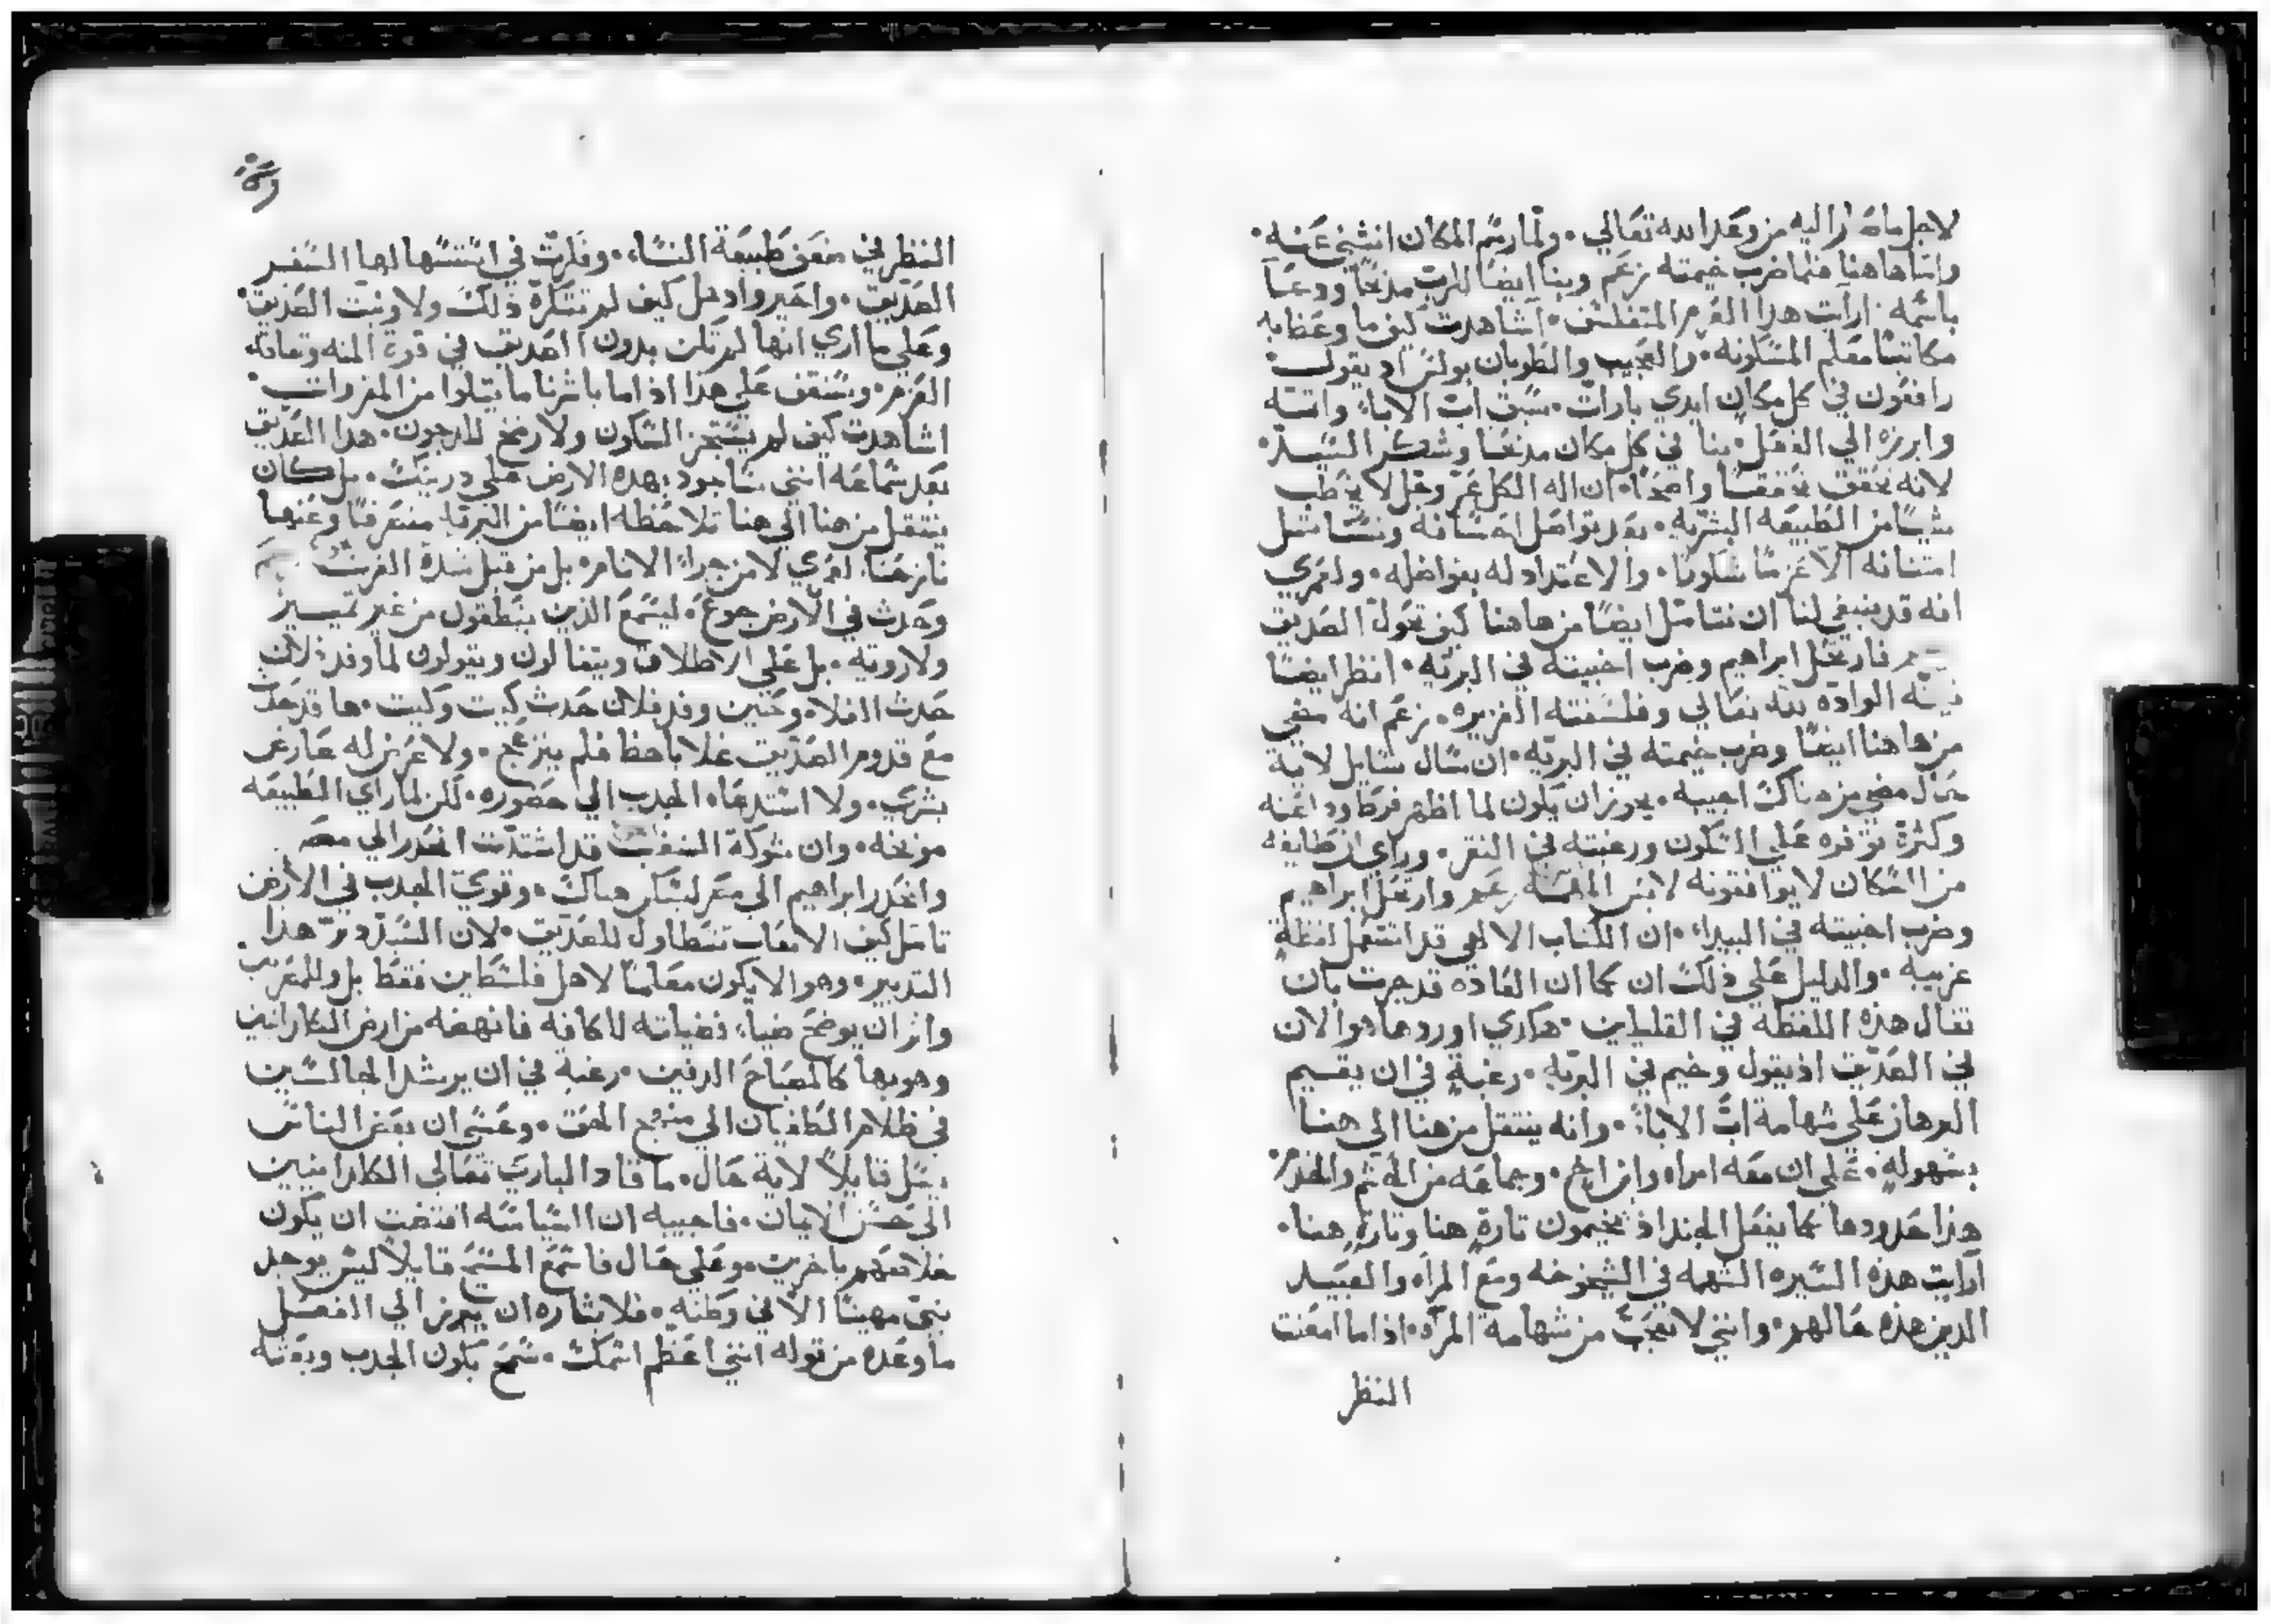 لاجل ما صار اليه من وعد الله تعالي. ولما رسم المكان انثني عنه.
وابتناها هنا فلما ضرب خيمته زعم وبنا ايضا للرب مذبحًا ودعا
باسمه. ارايت هذا العزم المتفلسف. اشاهدت كيف ما وعظنا به
مكاتبنا معلم المسكونه. والعجيب والطوبان بولس اذ يقول.
رافعون في كل مكان ايدي بارات. سبق اب الاباء واتمه
وابرزه الي الفعل. بنا في كل مكان مذبحا وشكر السيد.
لانه تحقق تحققا واضحًا. ان اله الكل عز وجل لا يطلب
شيًا من الطبيعه البشريه. بعد تواصل احسانه
امتنانه الا عزمًا شكورًا. والاعتداد له بفواضله. ولعمري
انه قد ينبغي لنا ان نتامل ايضًا من هاهنا كيف تحول الصديق
فارتحل ابراهيم وضرب اخبيته في البريه. انظر ايضا
الواده لله تعالي وفلسفته الغزيره. زعم انه مضي
من هاهنا ايضًا وضرب خيمته في البريه. ان سال سايل لاية
حال مضي من هناك اجيبه. يجوز ان يكون لما اظهر فرط وداعته
وكثرة توفره علي السكون ورغبته في النقر. وراي ان طايفه
من السكان لا يوافقونه زعم وارتحل ابراهيم
وضرب اخبيته في البيداء. ان الكتاب الالهي قد استعمل لفظة
غريبه. والدليل علي ذلك ان كما ان العاده قد جرت بان
تقال هذه اللفظة في القلطين. هكذي اوردها هو الان
في الصديق اذ يقول وخيم في البريه. رغبةٍ في ان يقيم
البرهان علي شهامة اب الاباء. وانه ينتقل من هنا الي هنا
بسهولهٍ. علي ان معه امراه وابن اخ. وجماعه من الحشم والخدم
هذا حدودها كما يفعل الجند اذ يخيمون تارةٍ هنا وتارةٍ هنا.
ارايت هذه السيره الشهمه في الشيخوخه ومع المراه والعبيد
الذين هذه حالهم. وانني لاتعجب من شهامة المرآه. اذا ما امعنت
النظر
النظر في ضعف طبيعة النساء. وفكرت في استسهالها السفر
الصديق. واخير واذهل كيف لم تتكره ذلك ولا ونبت الصديق.
وعلي ما اري انها لم تكن بدون الصديق في قوة المنه وتعاقد
العزم. وسنقف علي هذا اذا ما باشرنا ما يتلوا من المقروات.
اشاهدت كيف لم يستحز السكون ولا رضخ للرجون. هذا الصديق
بعد سماعه انني ساجود بهذه الارض علي دريتك. بل كان
ينتقل من هنا الي هنا تلاحظه ايضًا من البريه منعرفًا وعنها
نازحًا. لعمري لا من جراءً الانام. بل من قبل شدة
وحدث في الارض جوع. ليسمع الذين ينطقون من غير تمييز
ولا رويه. بل علي الاطلاق ويتفالون ويتولون لما وفد فلان
حدث الغلاء. وحين وفد فلان حدث كيت وكيت. ها قد حدث
مع قدوم الصديق غلا باهظ فلم ينزعج. ولا عرض له عارض
بشري. ولا استدعاء الجدب الي حضوره. لكن لما راي الطبيعه
موبخه. وان شوكة السغب قد اشتدت انحدر الي مصر
وانحدر ابراهيم الي مصر ليسكن هناك. وتقوي الجدب في الارض
تامل كيف الاتعاب تتطاول للصديق. لان السيد دبر هذا
التدبير. وهو الا يكون معلمًا لاهل فلسطين فقط بل وللمغرب
وان يوضح ضياء فضياته للكافه فانهضه من ارض الكلدانين
وهو بها كالمصباح الدفين. رغبة في ان يرشد الجالسين
في ظلام الطغيان الي منهج الحق. وعسي ان بعض الناس
يسل قايلاً لاية حال. ما قاد الباري تعالي الكلدانيين
الي حسن الايمان. فاجيبه ان السياسه اقتضت ان يكون
خلاصهم باخرين. وعلي حال فاستمع المسيح قايلاً ليس يوجد
نبي مهينًا الا في وطنهِ. فلايثاره ان يبرز الي الفعل
ما وعده من قوله انني اعظم اسمك. سمح بكون الجدب